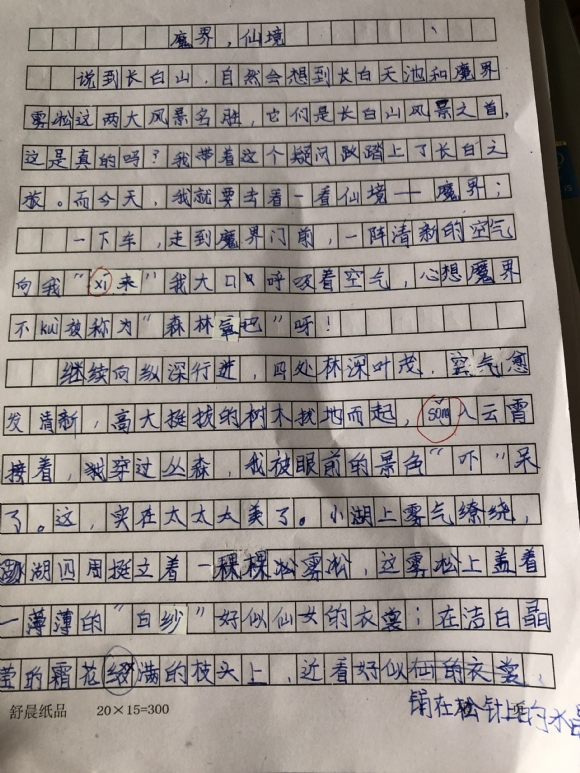 魔界，仙境
说到长白山，自然会想到长白天池和魔界
雾凇这两大风景名胜，它们是长白山风景之首，
这是真的吗？我带着这个疑问踏上了长白之
旅。而今天，我就要去看一看仙境——魔界；
一下车，走到魔界门前，一阵清新的空气
向我“xi来”我大口口呼吸着空气，心想魔界
不kuì被称为“森林氧吧”呀！
继续向纵深行进，四处林深叶茂，空气愈
发清新，高大挺拔的树木拔地而起，sǒng入云霄
接着，我穿过丛森，我被眼前的景色“吓”呆
了。这，实在太太太美了。小湖上雾气缭绕，
湖四周挺立着一棵棵松雾松，这雾松上盖着
一薄薄的“白纱”好似仙女的衣裳；在洁白晶
莹的霜花缀满的枝头上，近看好似的衣裳、
镶在松针上的水晶
舒晨纸品 20×15=300